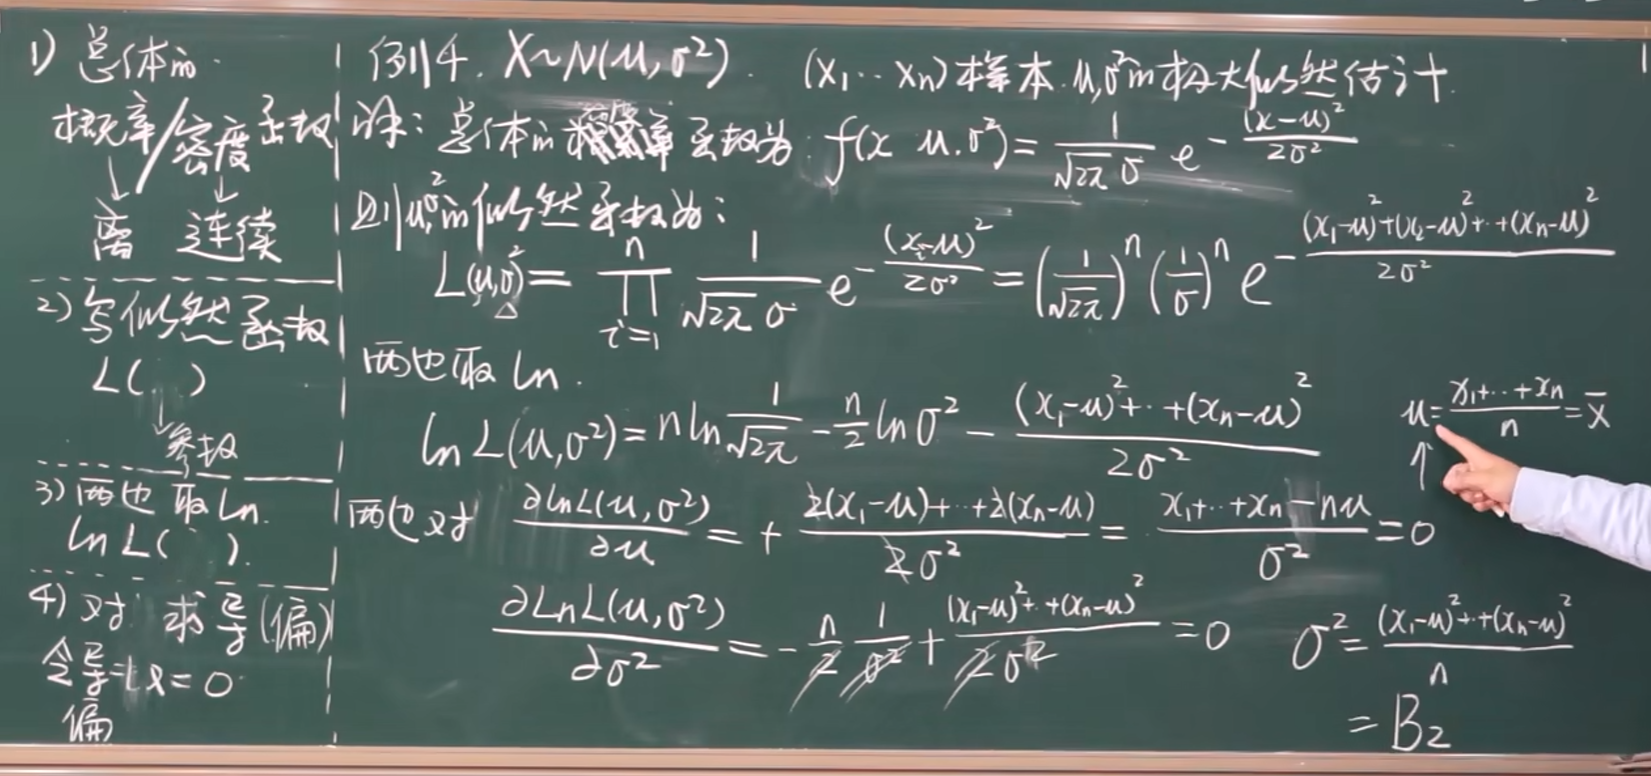 1) 总体的
概率/密度函数
↓ ↓
离 连续
2) 写似然函数
L( )
↓参数
3) 两边取ln.
ln L( ).
4) 对 求导(偏)
令导=0
偏
例4. X~N(μ,σ²). (x₁‥xₙ)样本.μ,σ²的极大似然估计.
解:总体的密度函数为 f(x μ.σ²)= 1/(√2π σ) e^(-(x-μ)²/(2σ²))
则μ,σ²的似然函数为:
L(μ,σ²)= ∏_{i=1}^{n} 1/(√2π σ) e^(-(xᵢ-μ)²/(2σ²)) = (1/√2π)ⁿ (1/σ)ⁿ e^(-((x₁-μ)²+(x₂-μ)²+‥+(xₙ-μ)²)/(2σ²))
两边取ln.
ln L(μ,σ²)= n ln 1/√2π - n/2 lnσ² - ((x₁-μ)²+‥+(xₙ-μ)²)/(2σ²)
两边对 ∂lnL(μ,σ²)/∂μ = + (2(x₁-μ)+‥+2(xₙ-μ))/(2σ²) = (x₁+‥+xₙ-nμ)/σ² = 0
μ= (x₁+‥+xₙ)/n = x̄
↑
∂LnL(μ,σ²)/∂σ² = - n/2 1/σ² + ((x₁-μ)²+‥+(xₙ-μ)²)/(2σ²) = 0
σ²= ((x₁-μ)²+‥+(xₙ-μ)²)/n
= B₂